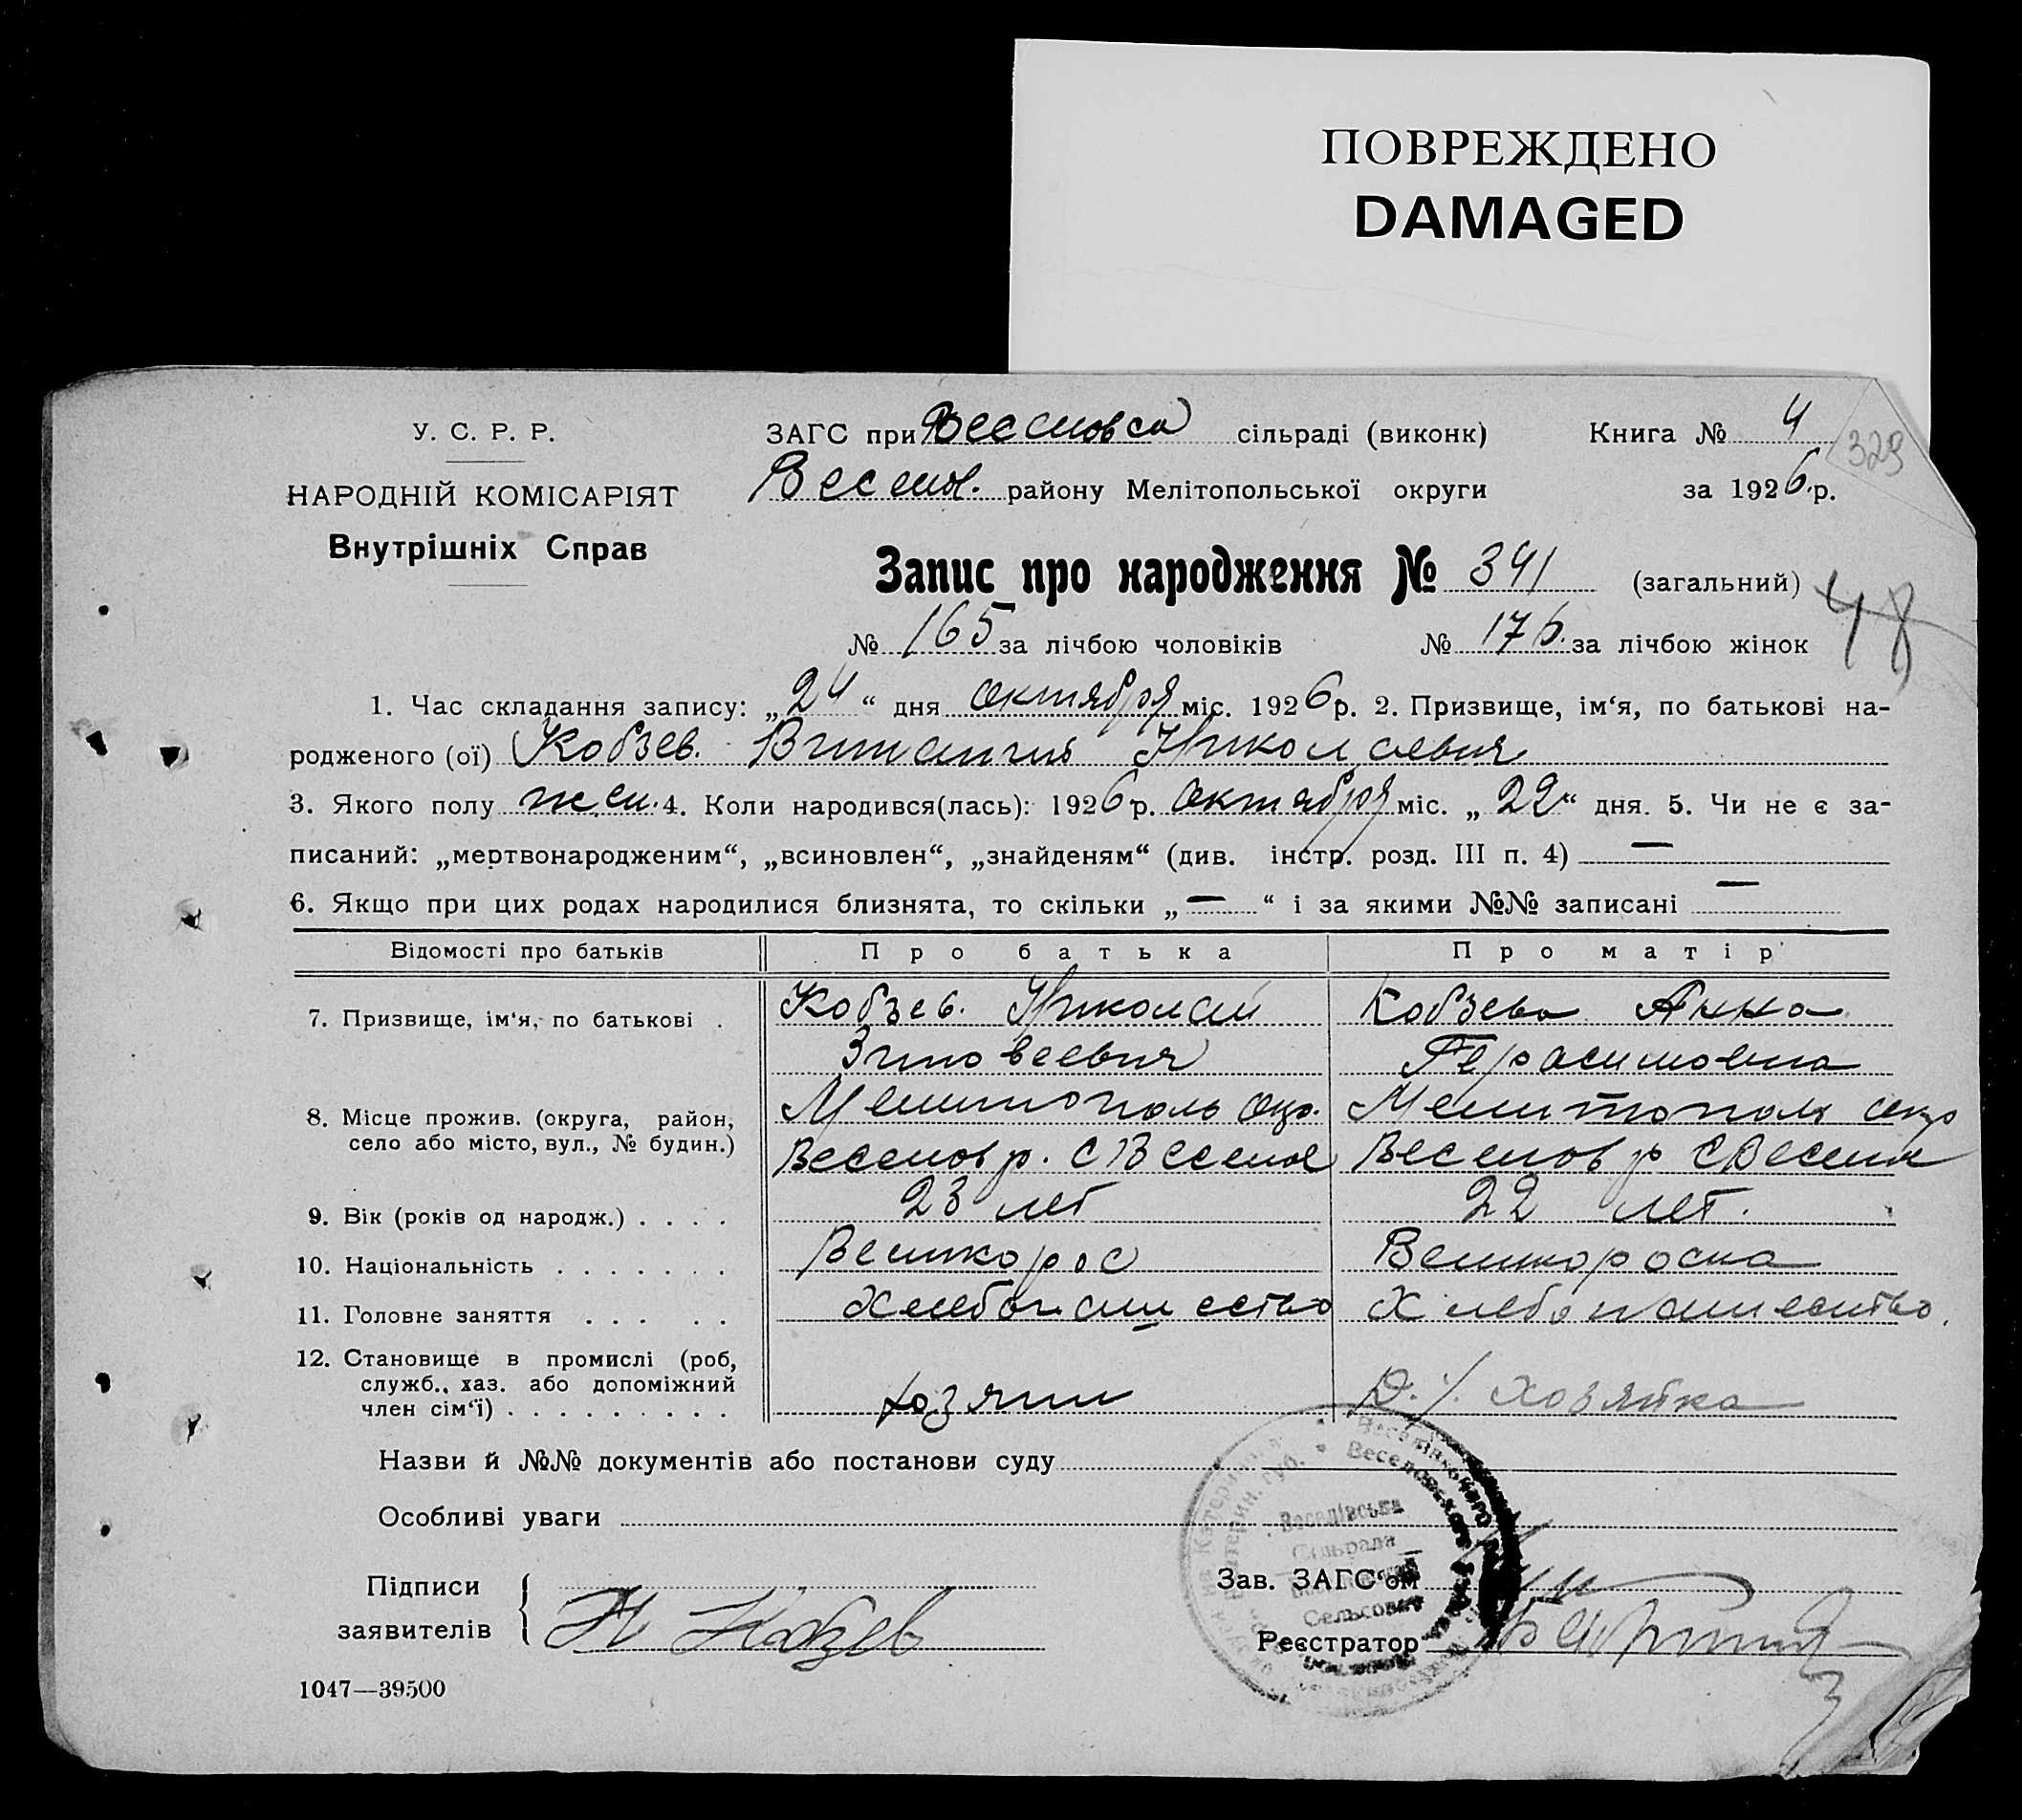 ПОВРЕЖДЕНО
DAMAGED
У. С. Р. Р.
НАРОДНІЙ КОМІСАРІЯТ
Внутрішніх Справ
ЗАГС при Веселовск сільраді (виконк) Книга № 4
329
Весел. району Мелітопольської округи за 1926 р.
Запис про народження № 341 (загальний)
48
№ 165 за лічбою чоловіків № 176. за лічбою жінок
1. Час складання запису: „24“ дня октября міс. 1926 р. 2. Призвище, ім‘я, по батькові на-
родженого (ої) Кобзев. Виталий Николаевич
3. Якого полу 4. Коли народився(лась): 1926 р. октября міс. „22“ дня. 5. Чи не є за-
писаний: „мертвонародженим“, „всиновлен“, „знайденям“ (див. інстр. розд. III п. 4) —
6. Якщо при цих родах народилися близнята, то скільки „—“ і за якими №№ записані —
Відомості про батьків Про батька Про матір
7. Призвище, ім‘я, по батькові . Кобзев. Николай Кобзева Анна
Зиновеевич Герасимовна
8. Місце прожив. (округа, район, Мелитополь окр. Мелитополь окр
село або місто, вул., № будин.) Веселов р. с Веселое Веселов р с Веселое
9. Вік (років од народж.) . . . . 23 лет 22 лет.
10. Національність . . . . . . . Великорос Великороска
11. Головне заняття . . . . . Хлебопашество Хлебопашество.
12. Становище в промислі (роб,
служб., хаз. або допоміжний
член сім‘ї) . . . . . . . . . хозяин Д. х. хозяйка
Назви й №№ документів або постанови суду
Особливі уваги
Веселівська
Сільрада
Сельсовет
Підписи
заявителів Н Кобзев
Зав. ЗАГС‘ом
Реєстратор
1047—39500